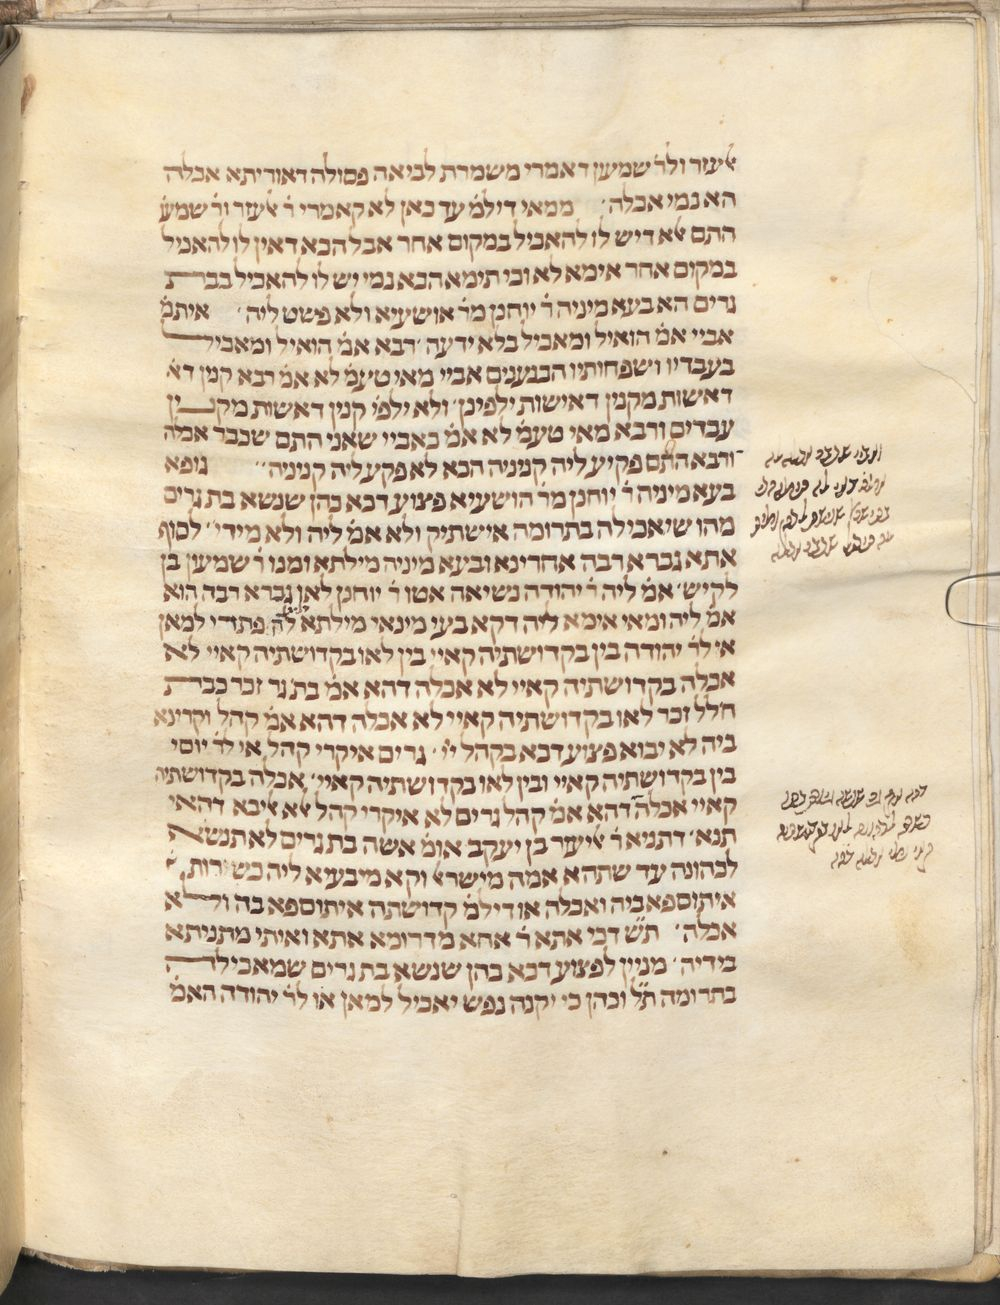 אלעזר ולר׳ שמעון דאמרי משמרת לביאה פסולה דאוריתא אכלה
הא נמי אכלה׳ ממאי דילמ׳ עד כאן לא קאמרי ר׳ אלעזר ור׳ שמע׳
התם אלא דיש לו להאכיל במקום אחר אבל הכא דאין לו להאכיל
במקום אחר אימא לא וכי תימא הכא נמי יש לו להאכיל בבת
גרים הא בעא מיניה ר׳ יוחנן מר׳ אושעיא ולא פשט ליה׳ איתמ׳
אביי אמ׳ הואיל ומאכיל בלא ידעה׳ רבא אמ׳ הואיל ומאכיל
בעבדיו ושפחותיו הכנענים אביי מאי טעמ׳ לא אמ׳ רבא קנין דא׳
דאשות מקנין דאישות ילפינן׳ ולא ילפי׳ קנין דאשות מקנין
עבדים ורבא מאי טעמ׳ לא אמ׳ כאביי שאני התם שכבר אכלה
ורבא התם פקיע ליה קניניה הכא לא פקע ליה קניניה׳׳ גופא
בעא מיניה ר׳ יוחנן מר׳ הושעיא פצוע דכא כהן שנשא בת גרים
מהו שיאכילה בתרומה אישתיק ולא אמ׳ ליה ולא מידי׳׳ לסוף
אתא גברא רבה אחרינא ובעא מיניה מילתא ומנו ר׳ שמעון בן
לקיש׳ אמ׳ ליה ר׳ יהודה נשיאה אטו ר׳ יוחנן לאו גברא רבה הוא
אמ׳ ליה ומאי אימא ליה דקא בעי מינאי מילתא לה פתרי למאן
אי לר׳ יהודה בין בקדושתיה קאיי בין לאו בקדושתיה קאיי לא
אכלה בקדושתיה קאיי לא אכלה דהא אמ׳ בת גר זכר כבת
חלל זכר לאו בקדושתיה קאיי לא אכלה דהא אמ׳ קהל וקרינא
ביה לא יבוא פצוע דכא בקהל יי׳ גרים איקרי קהל אי לר׳ יוסי
בין בקדושתיה קאיי ובין לאו בקדושתיה קאיי׳ אכלה בקדושתיה
קאיי אכלה דהא אמ׳ קהל גרים לא איקרי קהל אלא אליבא דהאי
תנא׳ דתניא ר׳ אליעזר בן יעקב אומ׳ אשה בת גרים לא תנשא
לכהונה עד שתהא אמה מישראל וקא מיבעיא ליה כשירות
איתוספא ביה ואכלה או דילמ׳ קדושתה איתוספא בה ולא
אכלה׳ ת״ש דכי אתא ר׳ אחא מדרומא אתא ואיתי מתניתא
בידיה׳ מנין לפצוע דכא כהן שנשא בת גרים שמאכילה
בתרומה ת״ל וכהן כי יקנה נפש יאכיל למאן או לר׳ יהודה האמ׳